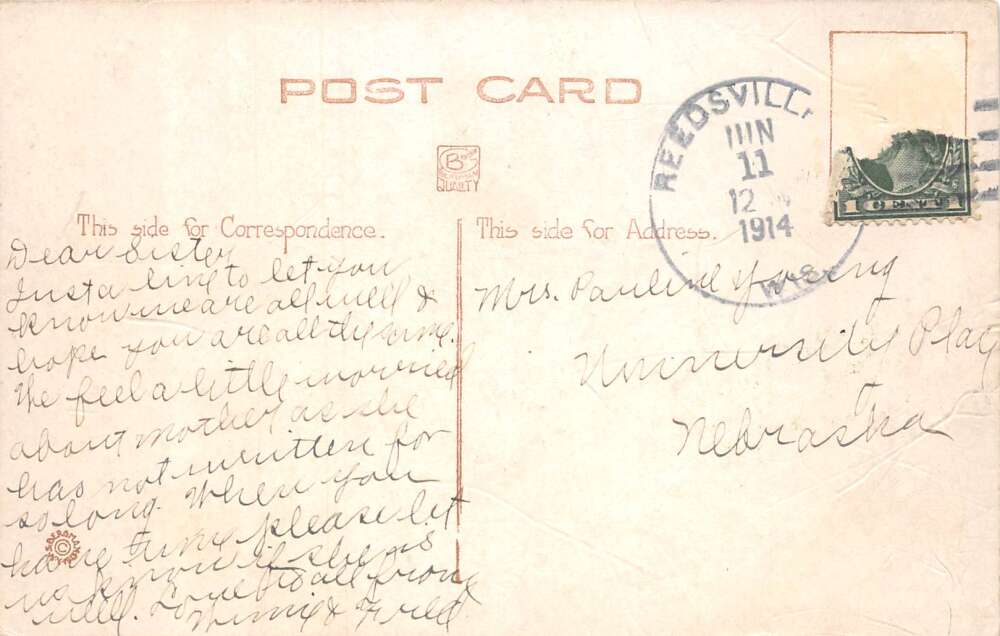 POST CARD
REEDSVILLE
JUN
11
12
1914
WIS
B
QUALITY
This side for Correspondence.
This side for Address.
Dear Sister
Just a line to let you
know we are all well &
hope you are all the same.
We feel a little worried
about mother as she
has not written for
so long. When you
have time please let
us know if she is
well. Love to all from
Minnie & Fred
Mrs. Pauline Young
University Place
Nebraska
1 1